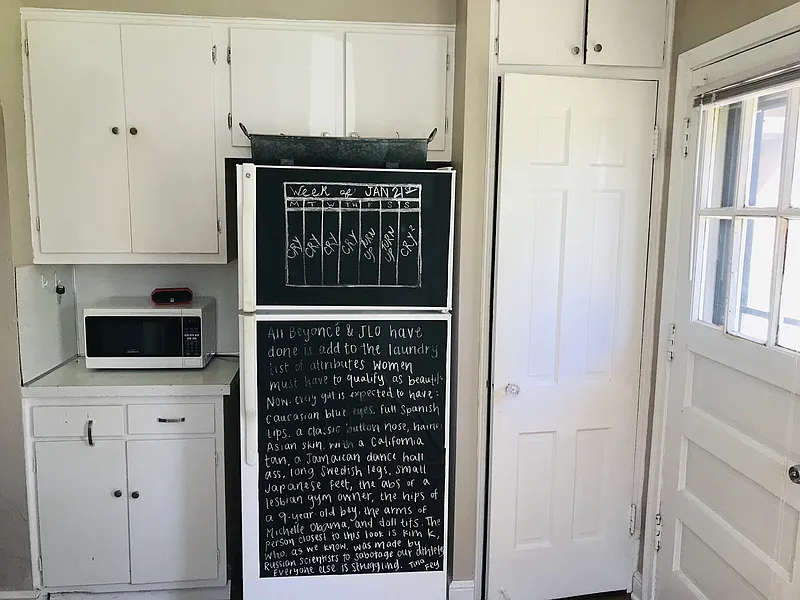 Week of JAN 21st
M T W TH F S S
CRY CRY CRY CRY TURN UP TURN UP CRY²
All Beyoncé & JLO have
done is add to the laundry
list of attributes women
must have to qualify as beautiful
Now every girl is expected to have:
Caucasian blue eyes, full Spanish
lips, a classic button nose, hairless
Asian skin with a California
tan, a Jamaican dance hall
ass, long Swedish legs, small
Japanese feet, the abs of a
lesbian gym owner, the hips of
a 9-year old boy, the arms of
Michelle Obama, and doll tits. The
person closest to this look is Kim K,
who, as we know, was made by
Russian scientists to sabotage our athletes
Everyone else is struggling. Tina
Fey